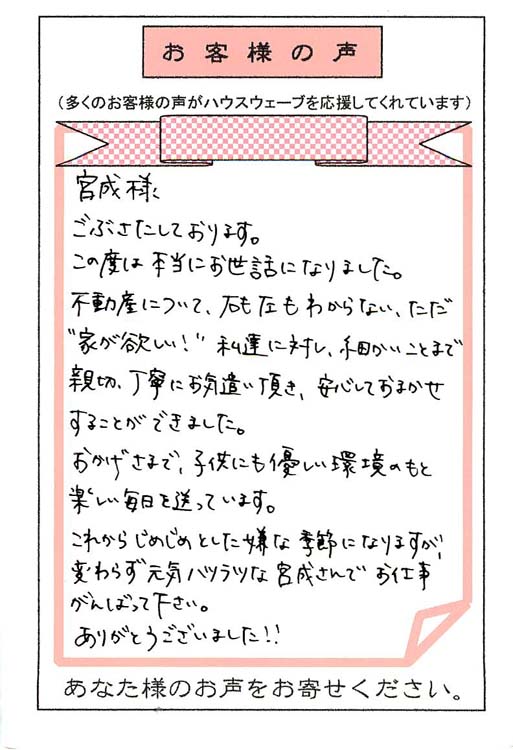 お客様の声
（多くのお客様の声がハウスウェーブを応援してくれています）
宮成様
ごぶさたしております。
この度は本当にお世話になりました。
不動産について、右も左もわからない、ただ
"家が欲しい！" 私達に対し、細かいことまで
親切、丁寧にお気遣い頂き、安心しておまかせ
することができました。
おかげさまで、子供にも優しい環境のもと
楽しい毎日を送っています。
これからじめじめとした嫌な季節になりますが、
変わらず元気ハツラツな宮成さんでお仕事
がんばって下さい。
ありがとうございました!!
あなた様のお声をお寄せください。